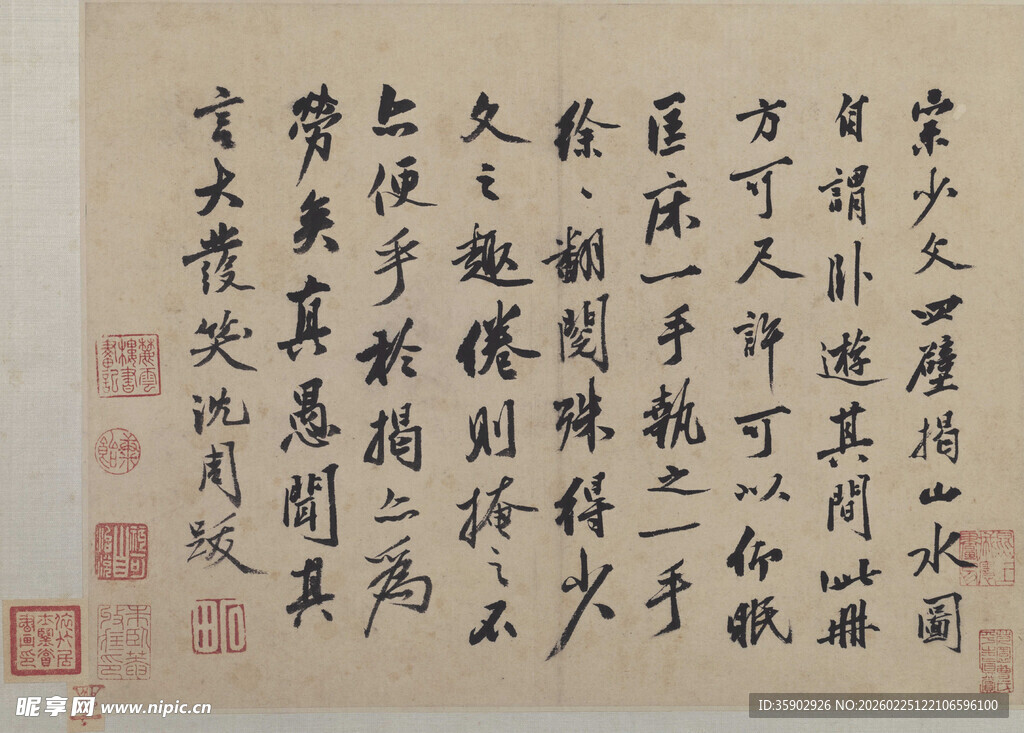 宗少文四壁揭山水圖
自謂卧遊其間此冊
方可尺許可以仰眠
匡床一手執之一手
徐〻翻閱殊得少
文之趣倦則掩之不
亦便乎於揭亦為
勞矣真愚聞其
言大發笑沈周跋
昵享网 www.nipic.cn
ID:35902926 NO:20260225122106596100